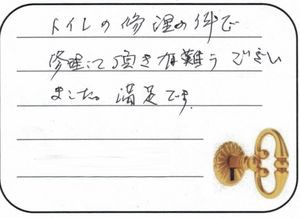 トイレの修理の件で
修理して頂き有難うござい
ました。満足です。